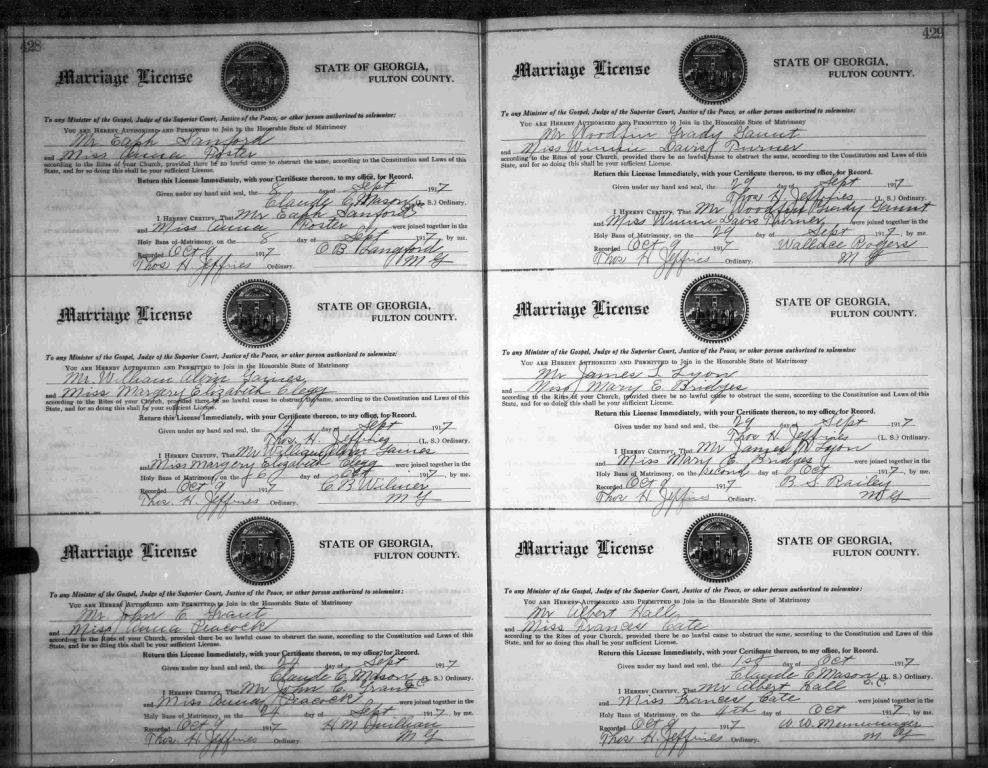 428
Marriage License
STATE OF GEORGIA,
FULTON COUNTY.
To any Minister of the Gospel, Judge of the Superior Court, Justice of the Peace, or other person authorized to solemnize:
YOU ARE HEREBY AUTHORIZED AND PERMITTED to Join in the Honorable State of Matrimony
Mr Eaph Sanford
and Miss Anna Foster
according to the Rites of your Church, provided there be no lawful cause to obstruct the same, according to the Constitution and Laws of this
State, and for so doing this shall be your sufficient License.
Return this License Immediately, with your Certificate thereon, to my office, for Record.
Given under my hand and seal, the 8 day of Sept 1917
Claude C Mason (L. S.) Ordinary.
I HEREBY CERTIFY, That Mr Eaph Sanford
and Miss Anna Foster were joined together in the
Holy Bans of Matrimony, on the 8 day of Sept 1917 by me.
Recorded Oct 9 1917 C B Langford
Thos H Jeffries Ordinary. M G
Marriage License
STATE OF GEORGIA,
FULTON COUNTY.
To any Minister of the Gospel, Judge of the Superior Court, Justice of the Peace, or other person authorized to solemnize:
YOU ARE HEREBY AUTHORIZED AND PERMITTED to Join in the Honorable State of Matrimony
Mr William Gaines
and Miss Margery Elizabeth Clegg
according to the Rites of your Church, provided there be no lawful cause to obstruct the same, according to the Constitution and Laws of this
State, and for so doing this shall be your sufficient License.
Return this License Immediately, with your Certificate thereon, to my office, for Record.
Given under my hand and seal, the day of Sept 1917
Thos. H. Jeffries (L. S.) Ordinary.
I HEREBY CERTIFY, That Mr William Gaines
and Miss Margery Elizabeth Clegg were joined together in the
Holy Bans of Matrimony, on the day of 1917, by me.
Recorded Oct 9 1917 C B Wilmer
Thos. H. Jeffries Ordinary. M G
Marriage License
STATE OF GEORGIA,
FULTON COUNTY.
To any Minister of the Gospel, Judge of the Superior Court, Justice of the Peace, or other person authorized to solemnize:
YOU ARE HEREBY AUTHORIZED AND PERMITTED to Join in the Honorable State of Matrimony
Mr John C Grant
and Miss Annie Peacock
according to the Rites of your Church, provided there be no lawful cause to obstruct the same, according to the Constitution and Laws of this
State, and for so doing this shall be your sufficient License.
Return this License Immediately, with your Certificate thereon, to my office, for Record.
Given under my hand and seal, the 24 day of Sept 1917
Claude C Mason (L. S.) Ordinary.
I HEREBY CERTIFY, That Mr John C. Grant
and Miss Annie Peacock were joined together in the
Holy Bans of Matrimony, on the 24 day of Sept 1917, by me.
Recorded Oct 9 1917 H M Quillian
Thos. H. Jeffries Ordinary. M G
429
Marriage License
STATE OF GEORGIA,
FULTON COUNTY.
To any Minister of the Gospel, Judge of the Superior Court, Justice of the Peace, or other person authorized to solemnize:
YOU ARE HEREBY AUTHORIZED AND PERMITTED to Join in the Honorable State of Matrimony
Mr Woodfin Grady Gaunt
and Miss Winnie Davis Turner
according to the Rites of your Church, provided there be no lawful cause to obstruct the same, according to the Constitution and Laws of this
State, and for so doing this shall be your sufficient License.
Return this License Immediately, with your Certificate thereon, to my office, for Record.
Given under my hand and seal, the 29 day of Sept 1917
Thos H Jeffries (L. S.) Ordinary.
I HEREBY CERTIFY, That Mr Woodfin Grady Gaunt
and Miss Winnie Davis Turner were joined together in the
Holy Bans of Matrimony, on the 29 day of Sept 1917, by me.
Recorded Oct 9 1917 Wallace Rogers
Thos H Jeffries Ordinary. M G
Marriage License
STATE OF GEORGIA,
FULTON COUNTY.
To any Minister of the Gospel, Judge of the Superior Court, Justice of the Peace, or other person authorized to solemnize:
YOU ARE HEREBY AUTHORIZED AND PERMITTED to Join in the Honorable State of Matrimony
Mr James Lyon
and Miss Mary E Bridges
according to the Rites of your Church, provided there be no lawful cause to obstruct the same, according to the Constitution and Laws of this
State, and for so doing this shall be your sufficient License.
Return this License Immediately, with your Certificate thereon, to my office, for Record.
Given under my hand and seal, the 29 day of Sept 1917
Thos H Jeffries (L. S.) Ordinary.
I HEREBY CERTIFY, That Mr James Lyon
and Miss Mary E Bridges were joined together in the
Holy Bans of Matrimony, on the second day of Oct 1917, by me.
Recorded Oct 9 1917 B S Railey
Thos H Jeffries Ordinary. M G
Marriage License
STATE OF GEORGIA,
FULTON COUNTY.
To any Minister of the Gospel, Judge of the Superior Court, Justice of the Peace, or other person authorized to solemnize:
YOU ARE HEREBY AUTHORIZED AND PERMITTED to Join in the Honorable State of Matrimony
Mr Albert Hall
and Miss Frances Cate
according to the Rites of your Church, provided there be no lawful cause to obstruct the same, according to the Constitution and Laws of this
State, and for so doing this shall be your sufficient License.
Return this License Immediately, with your Certificate thereon, to my office, for Record.
Given under my hand and seal, the 1st day of Oct 1917
Claude C Mason (L. S.) Ordinary.
I HEREBY CERTIFY, That Mr Albert Hall
and Miss Frances Cate were joined together in the
Holy Bans of Matrimony, on the 4th day of Oct 1917, by me.
Recorded Oct 9 1917 W. W. Memminger
Thos. H. Jeffries Ordinary. M G